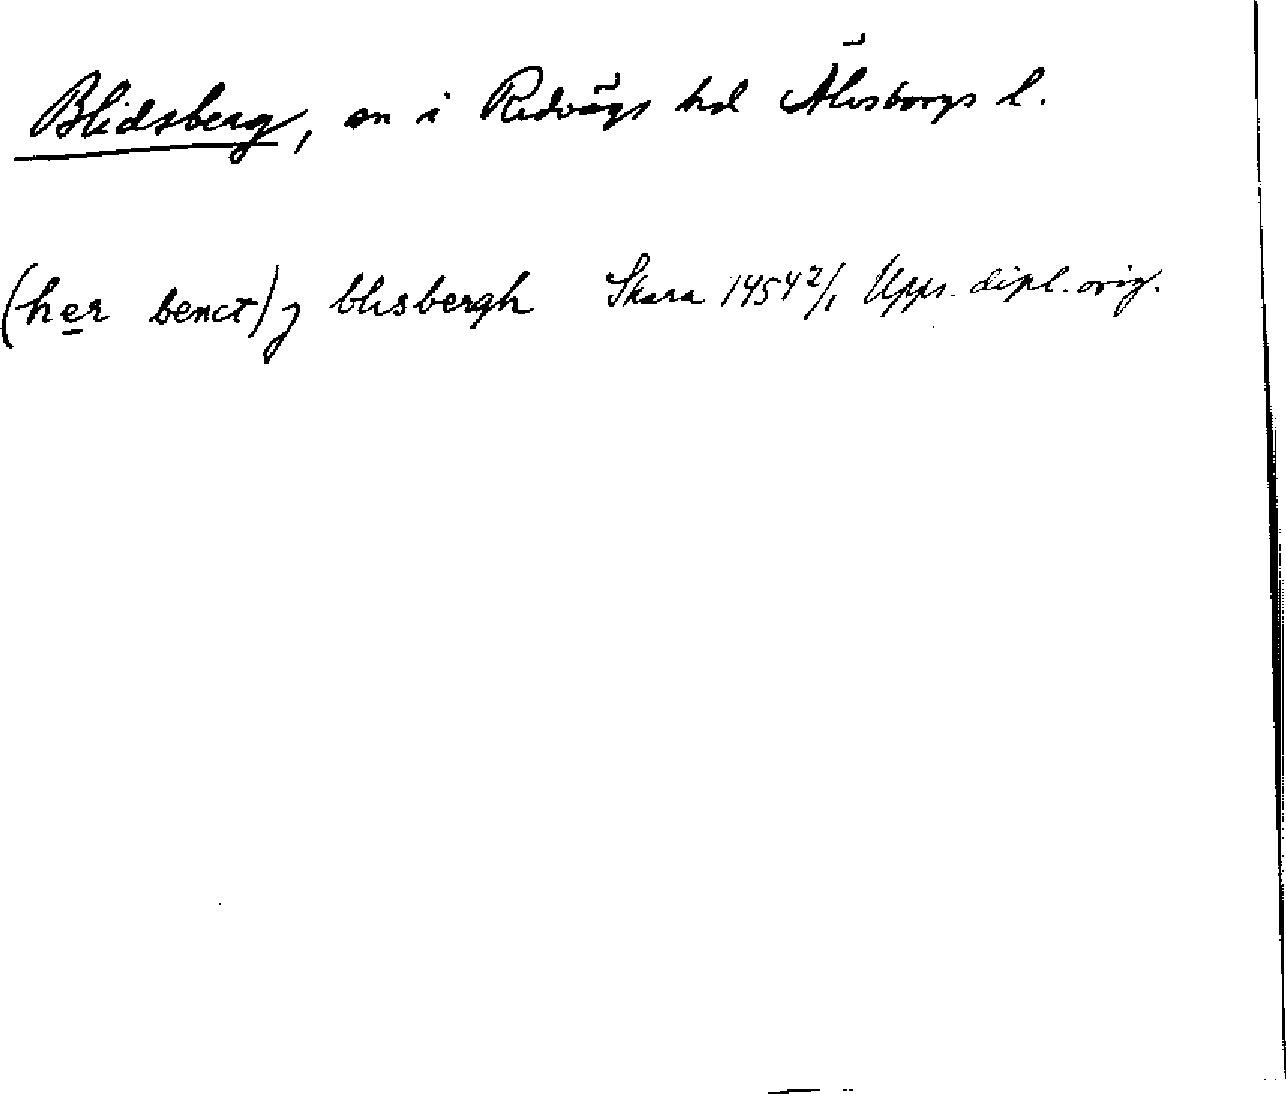 Blidsberg, sn i Redvägs hd Älvsborgs l.
(her benct) j blisbergh Skara 1454 2/1 Upps. dipl. orig.